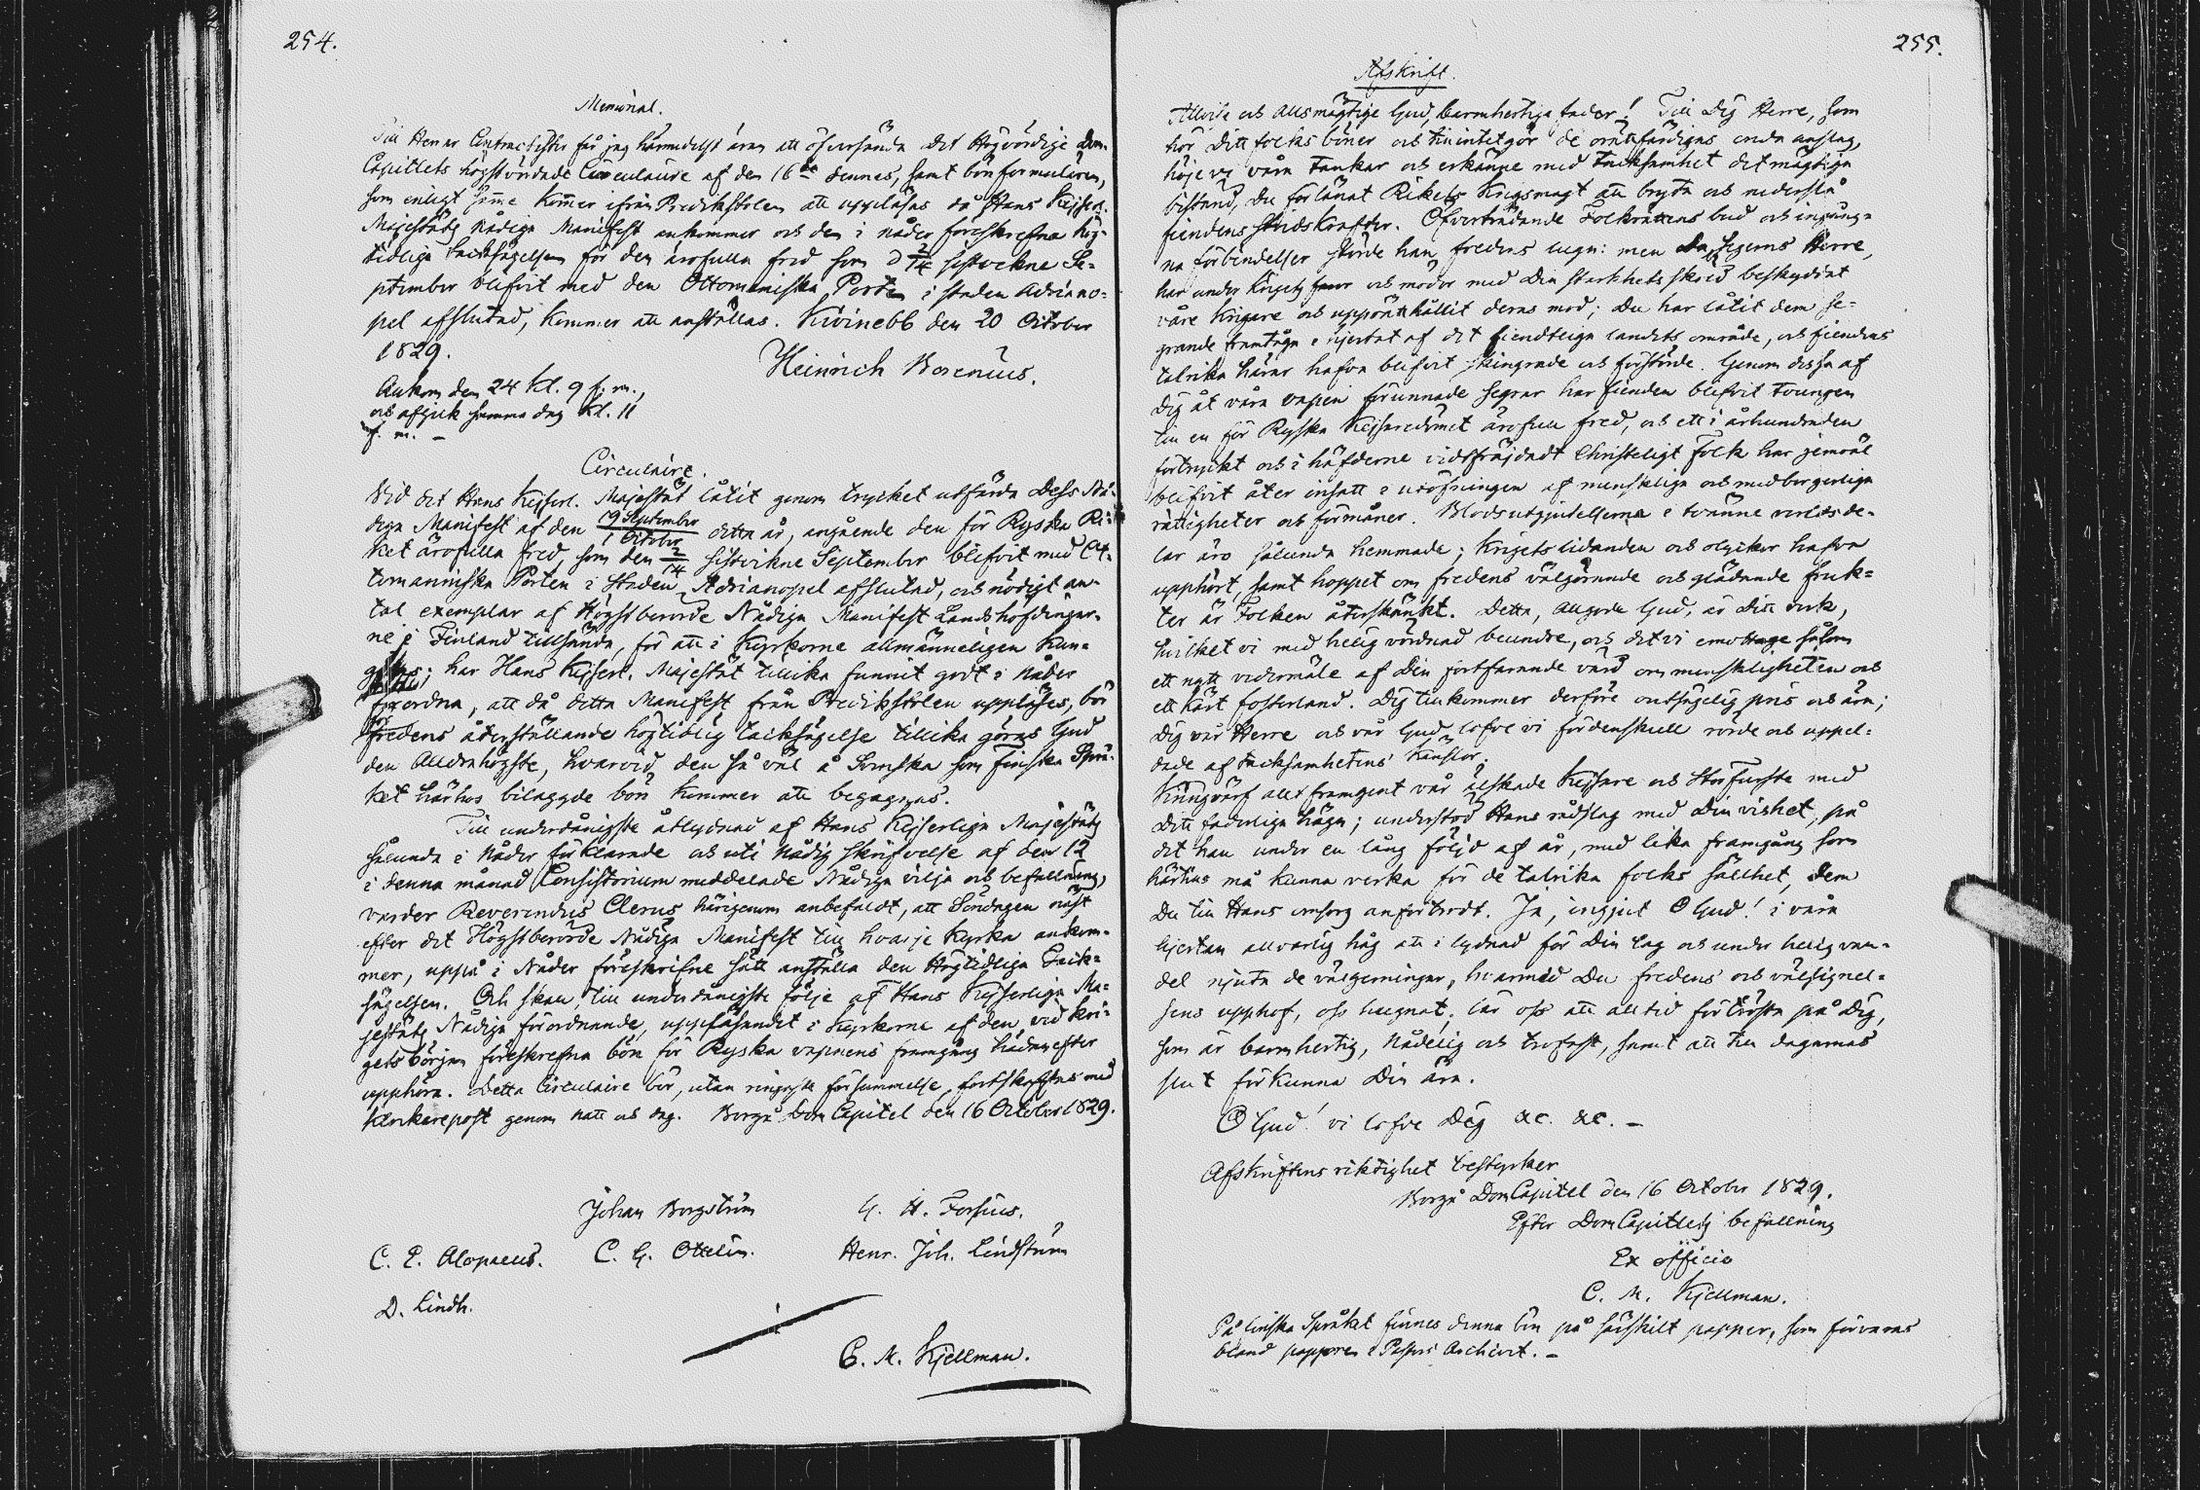 254.
Memorial.
Till Herrar Contractister får jag härmedelst äran att öfversända Det Högvördige Dom-
Capitlets högstvördade Circulaire af den 16de dennes, samt bönformulären,
som enligt samme kommer ifrån Predikstolen att uppläsas då Hans Kejserl.
Majestäts Nådiga Manifest ankommer och den i nåder föreskrefna hög-
tidliga Tacksägelsen för den ärofulla fred som d 2/14 sistvekne Se-
ptember blifvit med den Ottomaniska Porten i staden Adriano-
pel afslutad, kommer att anställas. Kivinebb den 20 October
1829.
Heinrich Borenius.
Ankom den 24 kl. 9 f. m.,
och afgick samma dag kl. 11
f. m. –
Circulaire.
Vid det Hans Kejserl. Majestät låtit genom trycket utfärda Dess Nå-
diga Manifest af den 19 September/1 October detta år, angående den för Ryska Ri-
ket ärofulla fred som den 2/14 sistvikne September blifvit med Ot-
tomanniska Porten i Staden Adrianopel afslutad, och nödigt an-
tal exemplar af Högstberörde Nådiga Manifest Landshöfdingar-
ne i Finland tillsända, för att i Kyrkorne allmänneligen kun-
göras; har Hans Kejserl. Majestät tillika funnit godt i Nåder
förordna, att då detta Manifest från Predikstolen uppläses, bör
för fredens återställande högtidlig tacksägelse tillika göras Gud
den Alldrahögste, hvarvid den så väl å Svenska som finska Språ-
ket härhos bilaggde bön kommer att begagnas.
Till underdånigste åtlydnad af Hans Kejserliga Majestäts
sålunda i Nåder förklarade och uti Nådig skrifvelse af den 12
i denna månad Consistorium meddelade Nådiga vilja och befallning,
varder Reverendus Clerus härigenom anbefaldt, att Söndagen näst
efter det Högstberörde Nådiga Manifest till hvarje Kyrka ankom-
mer, uppå i Nåder föreskrifne sätt anställa den Högtidliga Tack-
sägelsen. Och skall, till underdånigste följe af Hans Kejserliga Ma-
jestäts Nådiga förordnande, uppläsandet i kyrkorne af den vid kri-
gets början föreskrefna bön för Ryska vapnens framgång hädanefter
upphöra. Detta Circulaire bör, utan ringaste försummelse, fortskaffas med
klockarepost genom natt och dag. Borgå Dom Capitel den 16 October 1829.
Johan Borgström
G. H. Forsius.
C. P. Alopaeus.
C. G. Ottelin.
Henr. Joh. Lindström
D. Lindh.
C. M. Kjellman.
255.
Afskrift.
Allvise och Allsmägtige Gud, barmhertige fader! Till Dig Herre, som
hör Ditt folks böner och tillintetgör de orättfärdigas onda anslag,
höje vi våra tankar och erkänne med tacksamhet det mägtiga
bistånd, Du förlänat Rikets Krigsmagt att bryta och nederslå
fiendens stridskrafter. Öfverträdande Folkrättens bud och ingång-
na förbindelser störde han fredens lugn: men Du, Segerns Herre,
har under krigets faror och mödor med Din starkhets sköld beskyddat
våre Krigare och upprätthållit deras mod; Du har låtit dem se-
grande framtåga i hjertat af det fiendtliga landets område, och fiendens
talrika härar hafva blifvit skingrade och förstörde. Genom dessa af
Dig åt våra vapen förunnade segrar har fienden blifvit tvungen
till en för Ryska Kejsaredömet ärofull fred, och ett i århundraden
förtryckt och i häfderne vidtfrejdadt Christeligt Folk har jemväl
blifvit åter insatt i utöfningen af menskliga och medborgerliga
rättigheter och förmåner. Blodsutgjutelserna i tvänne verldsde-
lar äro sålunda hemmade; Krigets lidanden och olyckor hafva
upphört, samt hoppet om fredens välgörande och glädande fruk-
ter är Folken återskänkt. Detta, Allgode Gud, är Ditt verk,
hvilket vi med helig vördnad beundre, och det vi emottage såsom
ett nytt vedermäle af Din fortfarande vård om menskligheten och
ett kärt fosterland. Dig tillkommer derföre outsägelig pris och ära;
Dig vår Herre och vår Gud, lofve vi fördenskull rörde och uppel-
dade af tacksamhetens känslor.
Kringvärf allt framgent vår älskade Kejsare och Storfurste med
Ditt faderliga hägn; understöd Hans rådslag med Din vishet, på
det han under en lång följd af år, med lika framgång som
härtills må kunna verka för de talrika folks sällhet, dem
Du till Hans omsorg anförtrodt. Ja, ingjut O Gud! i våra
hjertan allvarlig håg att i lydnad för Din lag och under helig van-
del njuta de välgerningar, hvarmed Du fredens och välsignel-
sens upphof, oss hugnat; lär oss att alltid förtrösta på Dig,
som är barmhertig, Nådelig och trofast, samt att till dagarnas
slut förkunna Din ära.
O Gud! vi lofve Dig &c. &c. –
Afskriftens riktighet bestyrker
Borgå Dom Capitel den 16 October 1829.
Efter Dom Capitlets befallning
Ex officio
C. M. Kjellman.
På finska Språket finnes denna bön på särskilt papper, som förvaras
bland papperen i Pastors Archivet. –